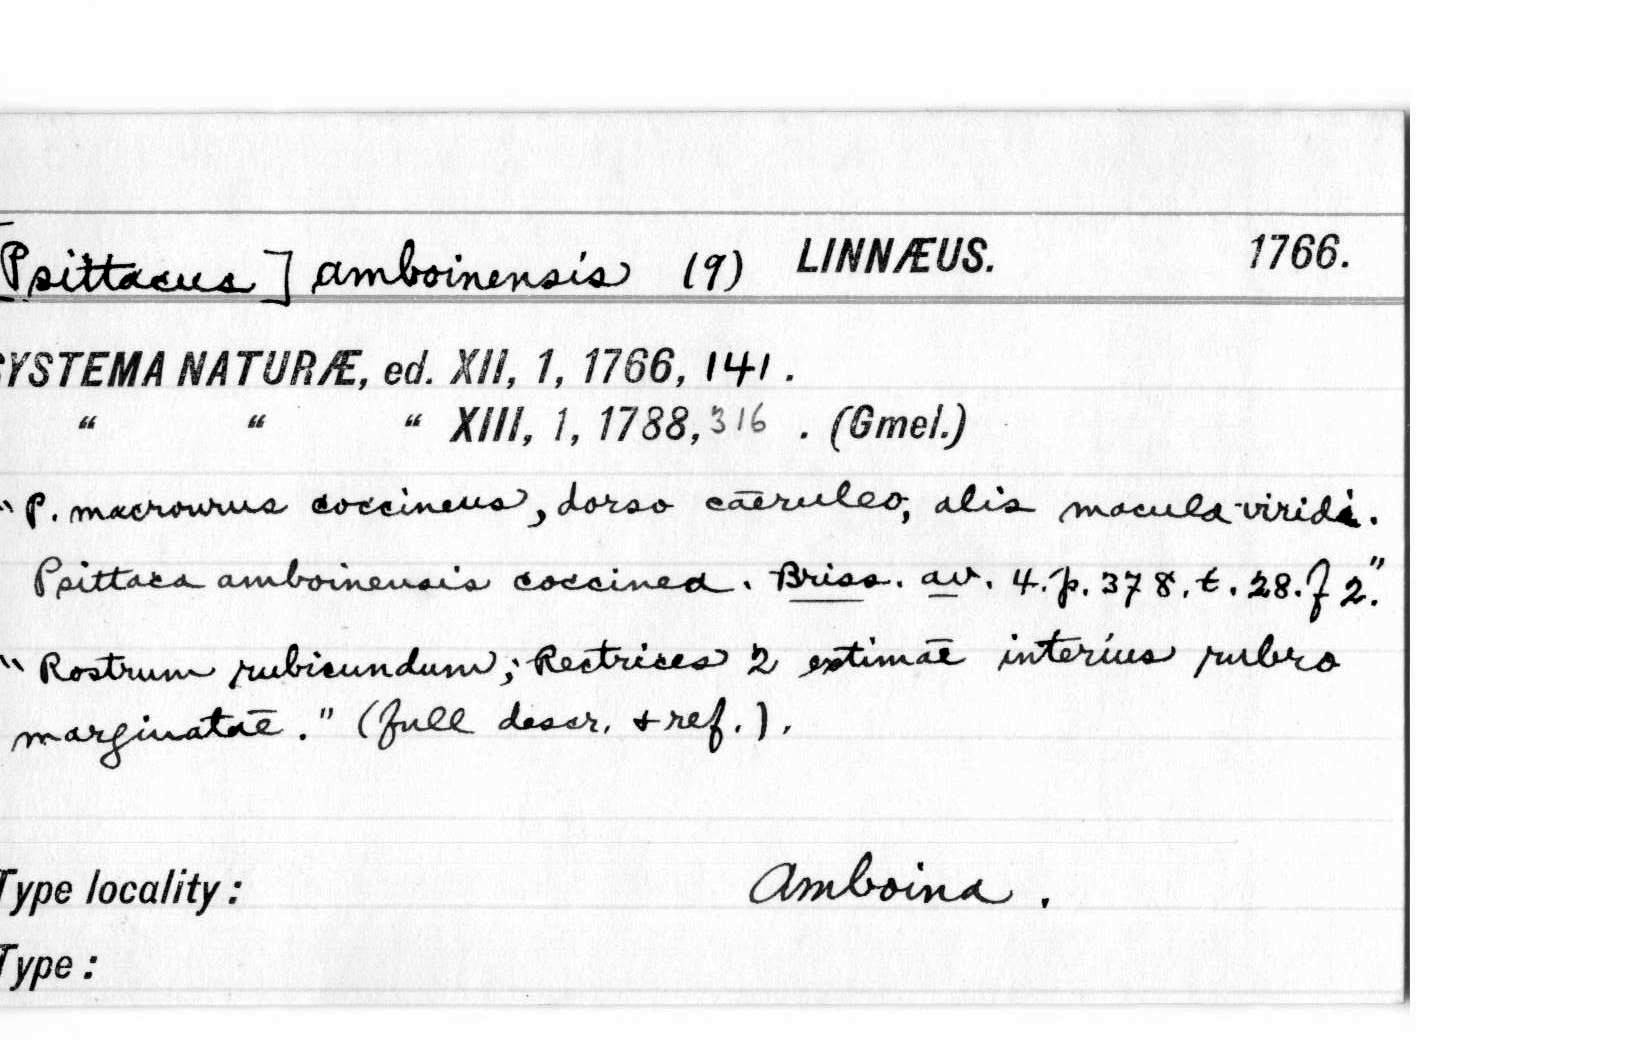 [Psittacus] amboinensis (9) LINNÆUS. 1766.
SYSTEMA NATURÆ, ed. XII, 1, 1766, 141.
“ “ “ XIII, 1, 1788, 316 . (Gmel.)
"P. macrourus coccineus, dorso cāeruleo, alis macula viridi.
Psittaca amboinensis coccinea. Briss. av. 4. p. 378. t. 28. f 2."
"Rostrum rubicundum; Rectrices 2 extimāe interius rubro
marginatāe." (full descr. + ref.).
Type locality: Amboina.
Type: